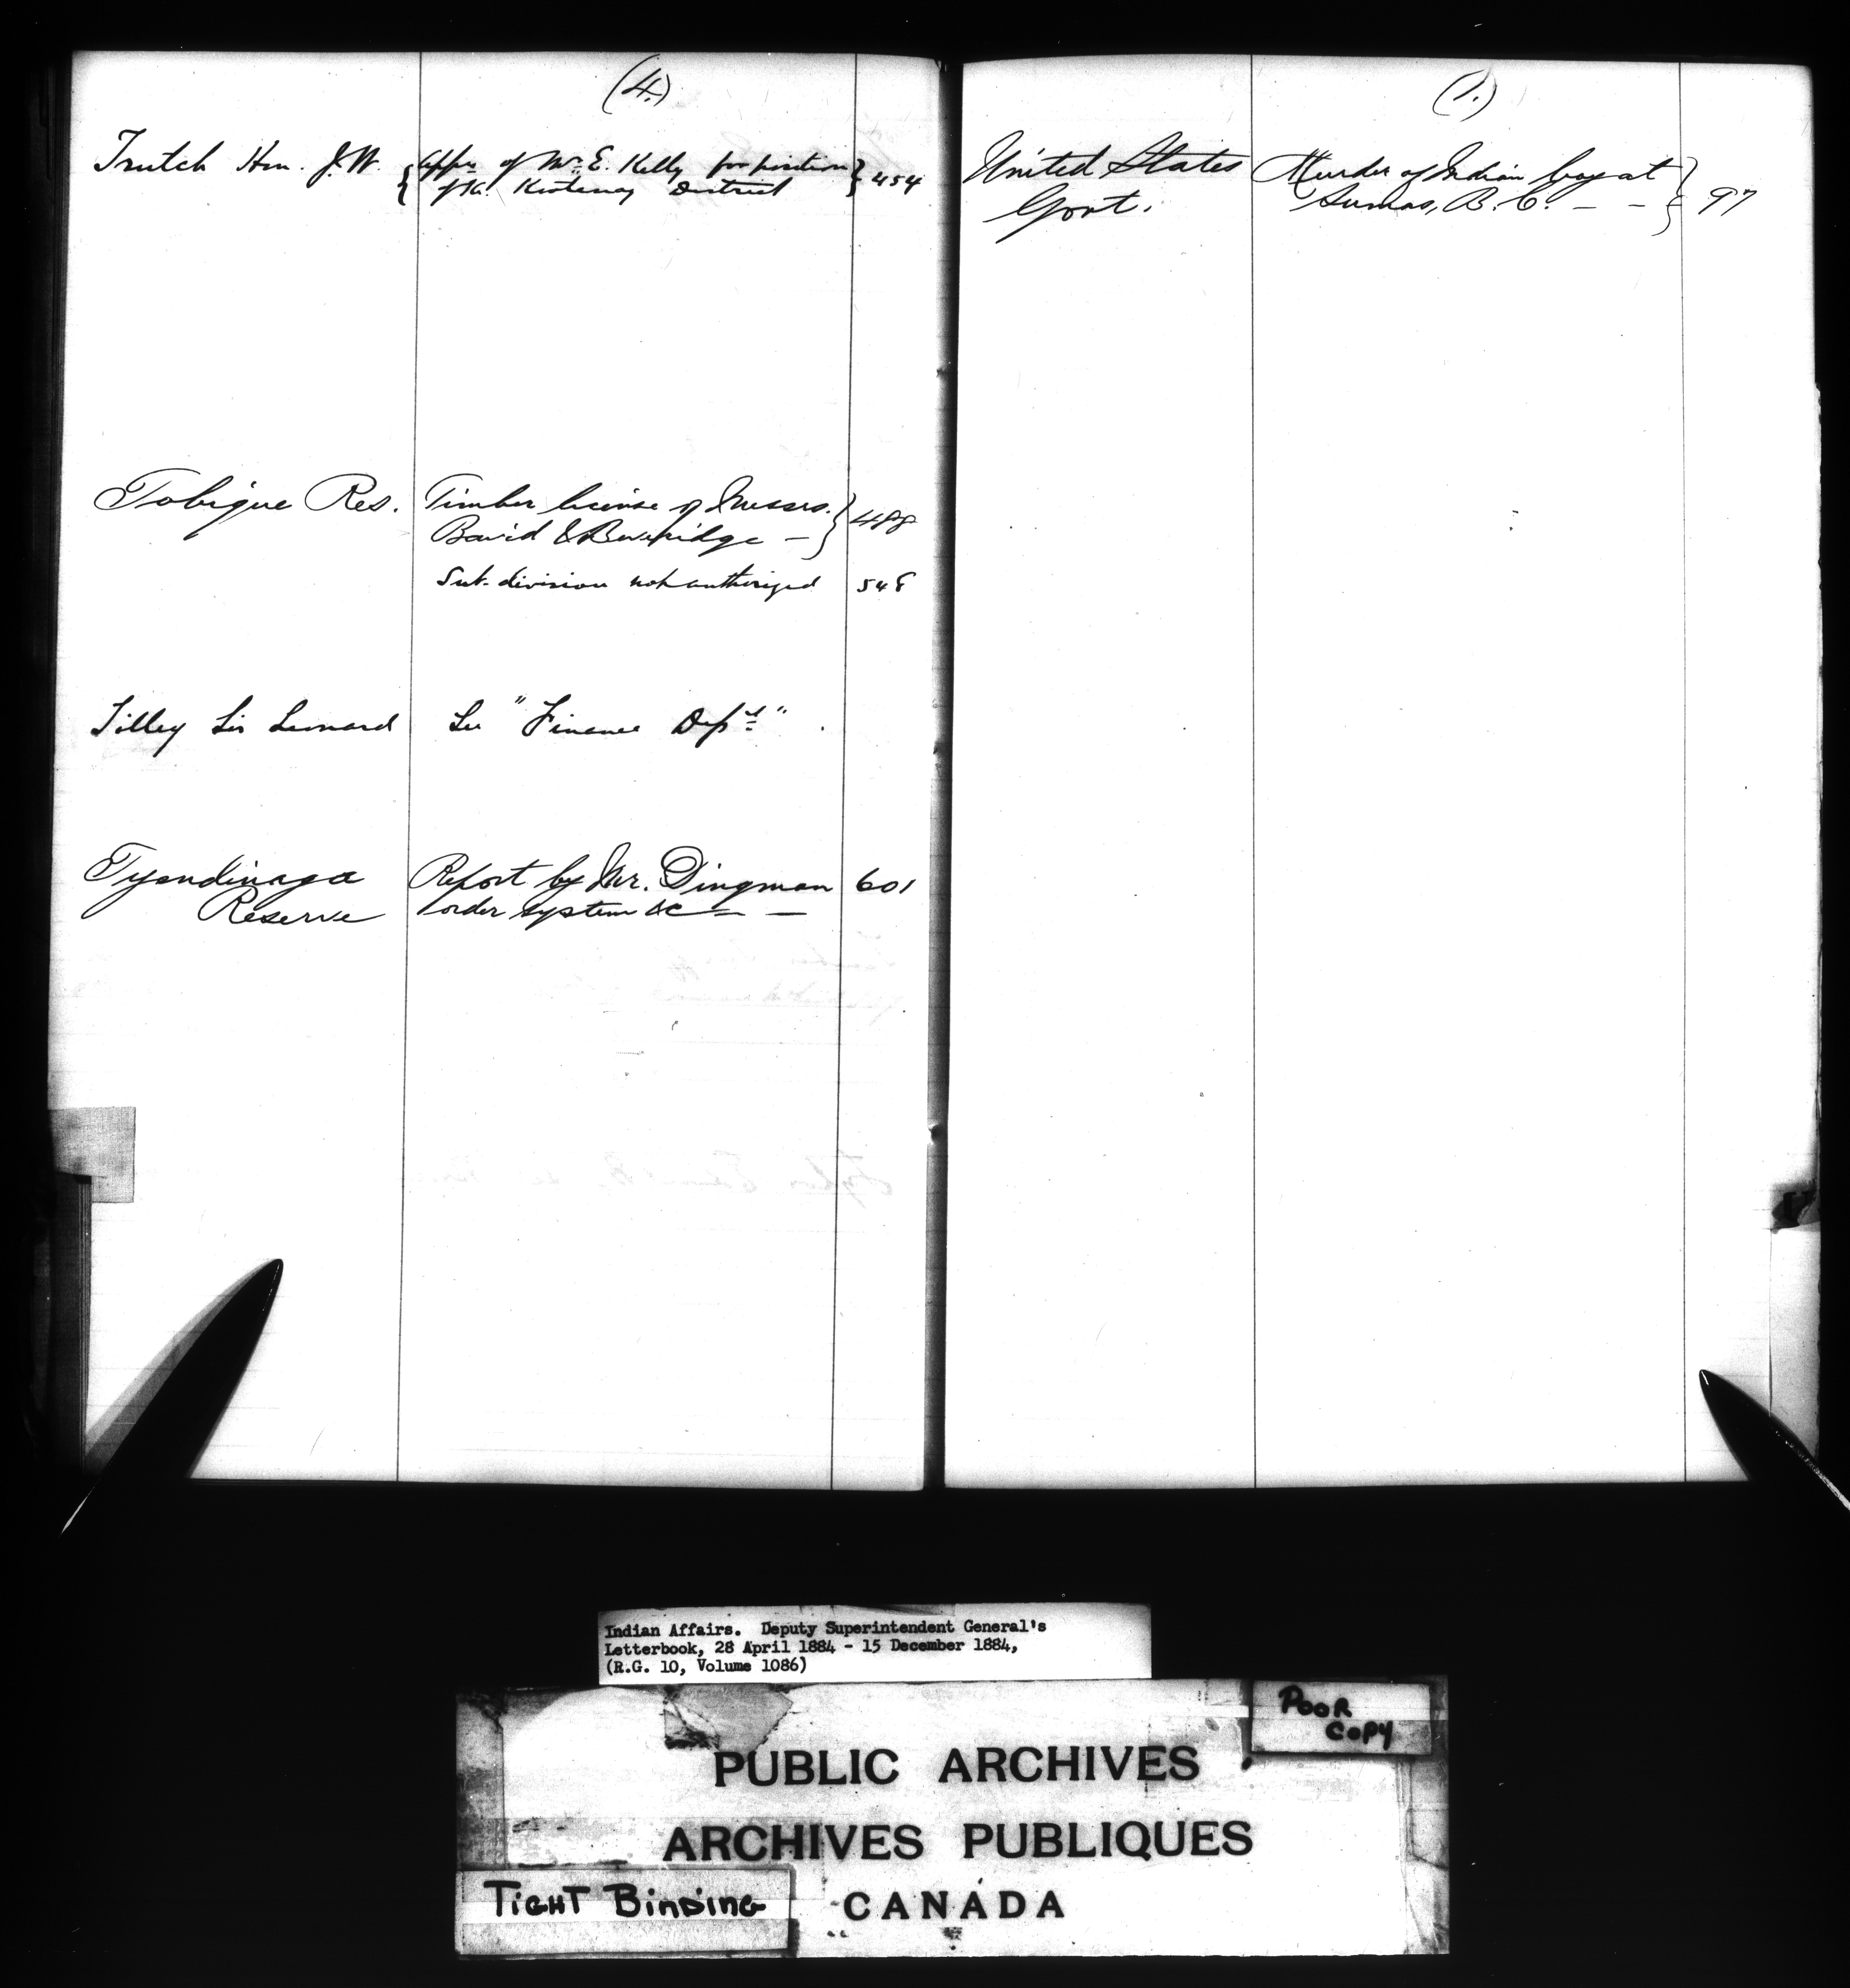 (4.)
Trutch Hon. J.W. { Appn of Mr. E. Kelly for position } 454
of Kootenay District
Tobique Res. Timber license of Messrs. } 488
David & Beveridge –
Sub-division not authorized 548
Tilley Sir Leonard See "Finance Dept"
Tyendinaga Report by Mr. Dingman 601
Reserve order system &c – –
(1.)
United States Murder of Indian boy at } 97
Govt. Sumas, B.C. – –
Indian Affairs. Deputy Superintendent General's
Letterbook, 28 April 1884 - 15 December 1884,
(R.G. 10, Volume 1086)
POOR
COPY
PUBLIC ARCHIVES
ARCHIVES PUBLIQUES
TIGHT BINDING
CANADA